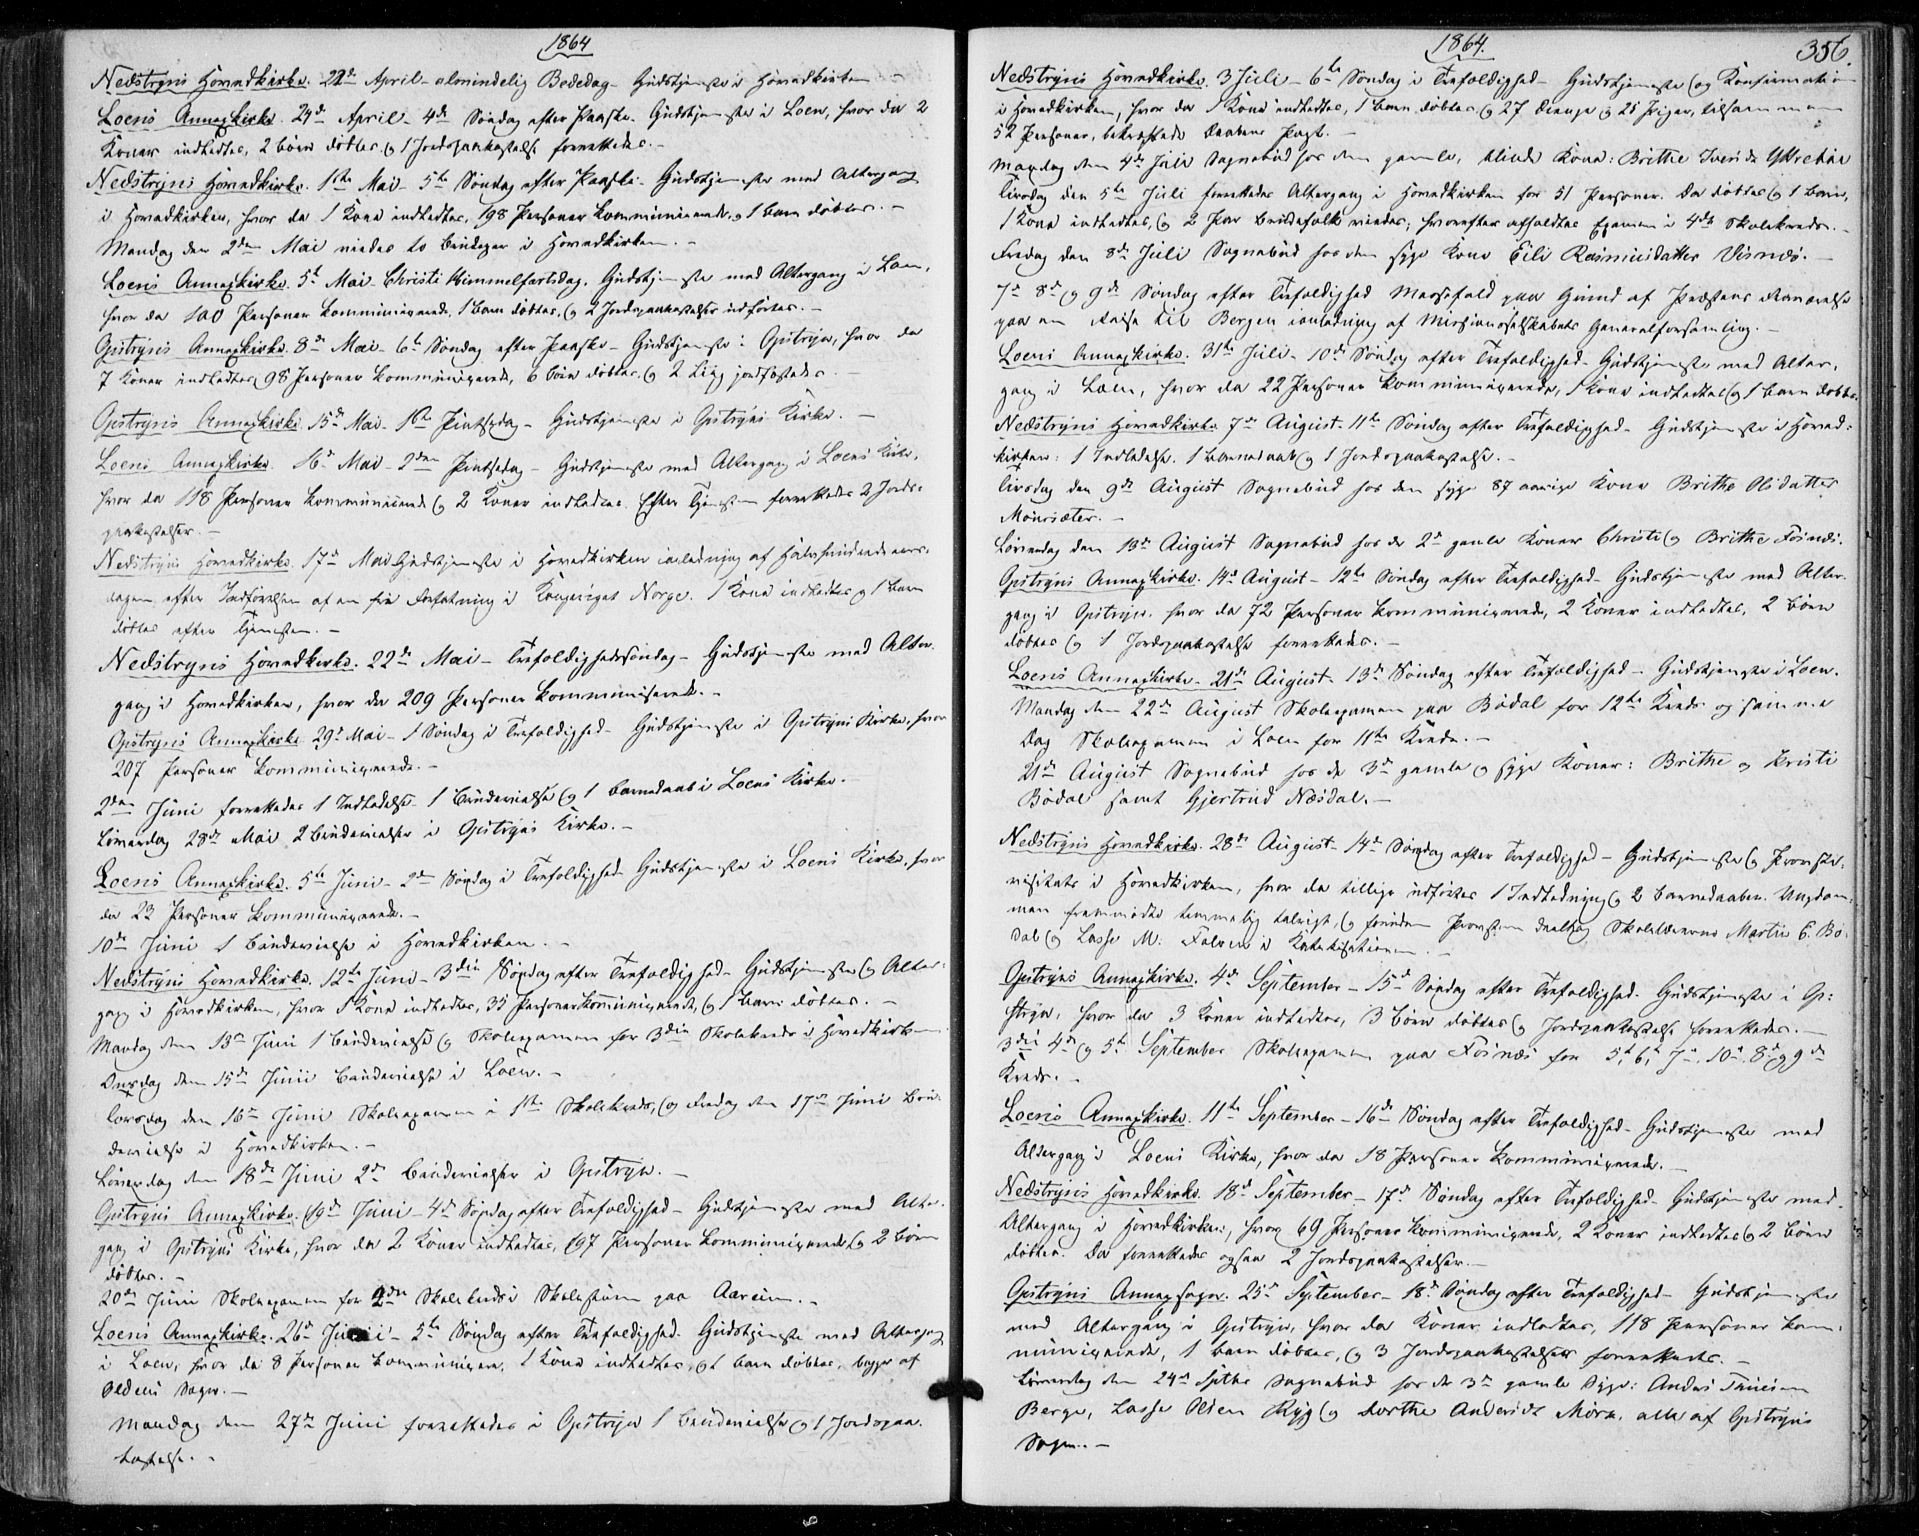 1864
Nedstryns Hovedkirke. 22de April – almindelig Bededag – Gudstjeneste i Hovedkirken –
Loens Annexkirke. 24de April – 4de Søndag efter Paaske. Gudstjeneste i Loen, hvor da 2
Koner indledtes, 2 børn døbtes og 1 Jordpaakastelse forrettedes. –
Nedstryns Hovedkirke. 1ste Mai – 5te Søndag efter Paaske – Gudstjeneste med Altergang
i Hovedkirken, hvor da 1 Kone indledtes, 198 Personer kommunicerede, og 1 barn døbtes. –
Mandag den 2den Mai viedes to brudepar i Hovedkirken. –
Loens Annexkirke. 5te Mai – Christi Himmelfartsdag. Gudstjeneste med Altergang i Loen,
hvor da 100 Personer kommunicerede, 1 barn døbtes, og 2 Jordpaakastelser udførtes. –
Opstryns Annexkirke. 8de Mai – 6te Søndag efter Paaske – Gudstjeneste i Opstryn, hvor da
7 Koner indledtes, 98 Personer kommunicerede, 6 børn døbtes, og 2 Liig jordfæstedes. –
Opstryns Annexkirke. 15de Mai – 1ste Pintsedag – Gudstjeneste i Opstryns Kirke. –
Loens Annexkirke. 16de Mai – 2den Pintsedag – Gudstjeneste med Altergang i Loens Kirke,
hvor da 118 Personer kommunicerede og 2 Koner indledtes. Efter Tjenesten forrettedes 2 Jords-
paakastelser. –
Nedstryns Hovedkirke. 17de Mai Gudstjeneste i Hovedkirken i anledning af Halvhundredeaars-
dagen efter Indførelsen af en fri Forfatning i Kongeriget Norge. 1 Kone indledtes og 1 barn
døbtes efter Tjenesten. –
Nedstryns Hovedkirke. 22de Mai – Trefoldighedssøndag – Gudstjeneste med Alter-
gang i Hovedkirken, hvor da 209 Personer kommunicerede. –
Opstryns Annexkirke 29de Mai – 1 Søndag i Trefoldighed – Gudstjeneste i Opstryns Kirke, hvor
207 Personer kommunicerede. –
2den Juni forrettedes 1 Indledelse – 1 Brudevielse og 1 barnedaab i Loens Kirke.
Løverdag 28de Mai 2 Brudevielser i Opstryns Kirke. –
Loens Annexkirke. 5te Juni – 2den Søndag i Trefoldighed Gudstjeneste i Loens Kirke, hvor
da 23 Personer kommunicerede. –
10de Juni 1 Brudevielse i Hovedkirken. –
Nedstryns Hovedkirke. 12te Juni – 3die Søndag efter Trefoldighed – Gudstjeneste og Alter-
gang i Hovedkirken, hvor 1 Kone indledtes, 35 Personer kommunicerede, og 1 barn døbtes. –
Mandag den 13de Juni 1 Brudevielse og Skoleexamen for 3die Skolekreds i Hovedkirken.
Onsdag den 15de Juni Brudevielse i Loen. –
Torsdag den 16de Juni Skoleexamen i 1ste Skolekreds, og Fredag den 17de Juni Bru-
devielse i Hovedkirken. –
Løverdag den 18de Juni 2de Brudevielser i Opstryn. –
Opstryns Annexkirke. 19de Juni – 4de Søndag efter Trefoldighed – Gudstjeneste med Alter-
gang i Opstryns Kirke, hvor da 2 Koner indledtes, 197 Personer kommunicerede og 2 børn
døbtes. –
20de Juni Skoleexamen for 2den Skolekreds i Skolestuen paa Aarein. –
Loens Annexkirke. 26de Juni – 5te Søndag efter Trefoldighed. Gudstjeneste med Altergang
i Loen, hvor da 8 Personer kommunicerede, 1 Kone indledtes, og 1 barn døbtes, begge af
Oldens Sogn. –
Mandag den 27de Juni forrettedes i Opstryn 1 Brudevielse og 1 Jordspaa-
kastelse. –
1864. 356.
Nedstryns Hovedkirke. 3 Juli – 6te Søndag i Trefoldighed – Gudstjeneste og Konfirmation
i Hovedkirken, hvor da 1 Kone indledtes, 1 barn døbtes og 27 Drenge og 25 Piger, tilsammen
52 Personer, bekræftede Daabens Pagt. –
Mandag den 4de Juli Sognebud hos den gamle, blinde Kone: Brithe Iversd. Ytreeide
Tirsdag den 5te Juli forrettedes Altergang i Hovedkirken for 51 Personer. Da døbtes og 1 barn,
1 Kone indledtes, og 2 Par Brudefolk viedes; hvorefter afholdtes Examen i 4de Skolekreds. –
Fredag den 8de Juli Sognebud hos den syge Kone Eili Rasmusdatter Visnes. –
7de 8de og 9de Søndag efter Trefoldighed Messefald paa Grund af Præstens Fraværelse
paa en Reise til Bergen i anledning af Missionsselskabets Generalforsamling. –
Loens Annexkirke. 31te Juli – 10de Søndag efter Trefoldighed – Gudstjeneste med Alter-
gang i Loen, hvor da 22 Personer kommunicerede, 1 Kone indledtes og 1 barn døbtes.
Nedstryns Hovedkirke 7de August – 11te Søndag efter Trefoldighed – Gudstjeneste i Hoved-
kirken: 1 Indledelse, 1 barnedaab og 1 Jordspaakastelse. –
Tirsdag den 9de August Sognebud hos den syge 87 aarige Kone Brithe Olsdatter
Meursæter. –
Løverdag den 13de August Sognebud hos de 2de gamle Koner Christi og Brithe Fosnes.
Opstryns Annexkirke. 14de August – 12te Søndag efter Trefoldighed – Gudstjeneste med Alter-
gang i Opstryn, hvor da 72 Personer kommunicerede, 2 Koner indledtes, 2 børn
døbtes og 1 Jordspaakastelse forrettedes. –
Loens Annexkirke – 21de August – 13de Søndag efter Trefoldighed – Gudstjeneste i Loen.
Mandag den 22de August Skoleexamen paa Bødal for 12te Kreds og samme
Dag Skoleexamen i Loen for 11te Kreds. –
21de August Sognebud hos de 3de gamle og syge Koner: Brithe og Kristi
Bødal samt Gjertrud Næsdal. –
Nedstryns Hovedkirke. 28de August – 14de Søndag efter Trefoldighed – Gudstjeneste og Provste-
visitats i Hovedkirken, hvor da tillige udførtes 1 Indledning og 2 barnedaaber. Ungdom-
men fremmødte temmelig talrigt, og foruden Provsten deeltog Skolelærerne Martin E. Bø-
dal og Lasse M. Folven i Katekisationen. –
Opstryns Annexkirke. 4de September – 15de Søndag efter Trefoldighed. Gudstjeneste i Op-
stryn, hvor da 3 Koner indledtes, 3 børn døbtes og Jordspaakastelse forrettedes. –
3die 4de og 5te September Skoleexamen paa Fosnes for 5te, 6te, 7de, 10de, 8de og 9de
Kreds. –
Loens Annexkirke. 11te September – 16de Søndag efter Trefoldighed – Gudstjeneste med
Altergang i Loens Kirke, hvor da 18 Personer kommunicerede. –
Nedstryns Hovedkirke. 18de September – 17de Søndag efter Trefoldighed – Gudstjeneste med
Altergang i Hovedkirken, hvor 69 Personer kommunicerede, 2 Koner indledtes og 2 børn
døbtes. Da forrettedes ogsaa 2 Jordspaakastelser. –
Opstryns Annexsogn. 25de September – 18de Søndag efter Trefoldighed – Gudstjeneste
med Altergang i Opstryn, hvor da Koner indledtes, 118 Personer kom-
municerede, 1 barn døbtes, og 3 Jordspaakastelser forrettedes. –
Løverdag den 24de Septbr Sognebud hos de 3de gamle Syge: Anders
Berge, Lasse Olsen Ryg og Dorthe Andersdt Mork, alle af Opstryns
Sogn. –